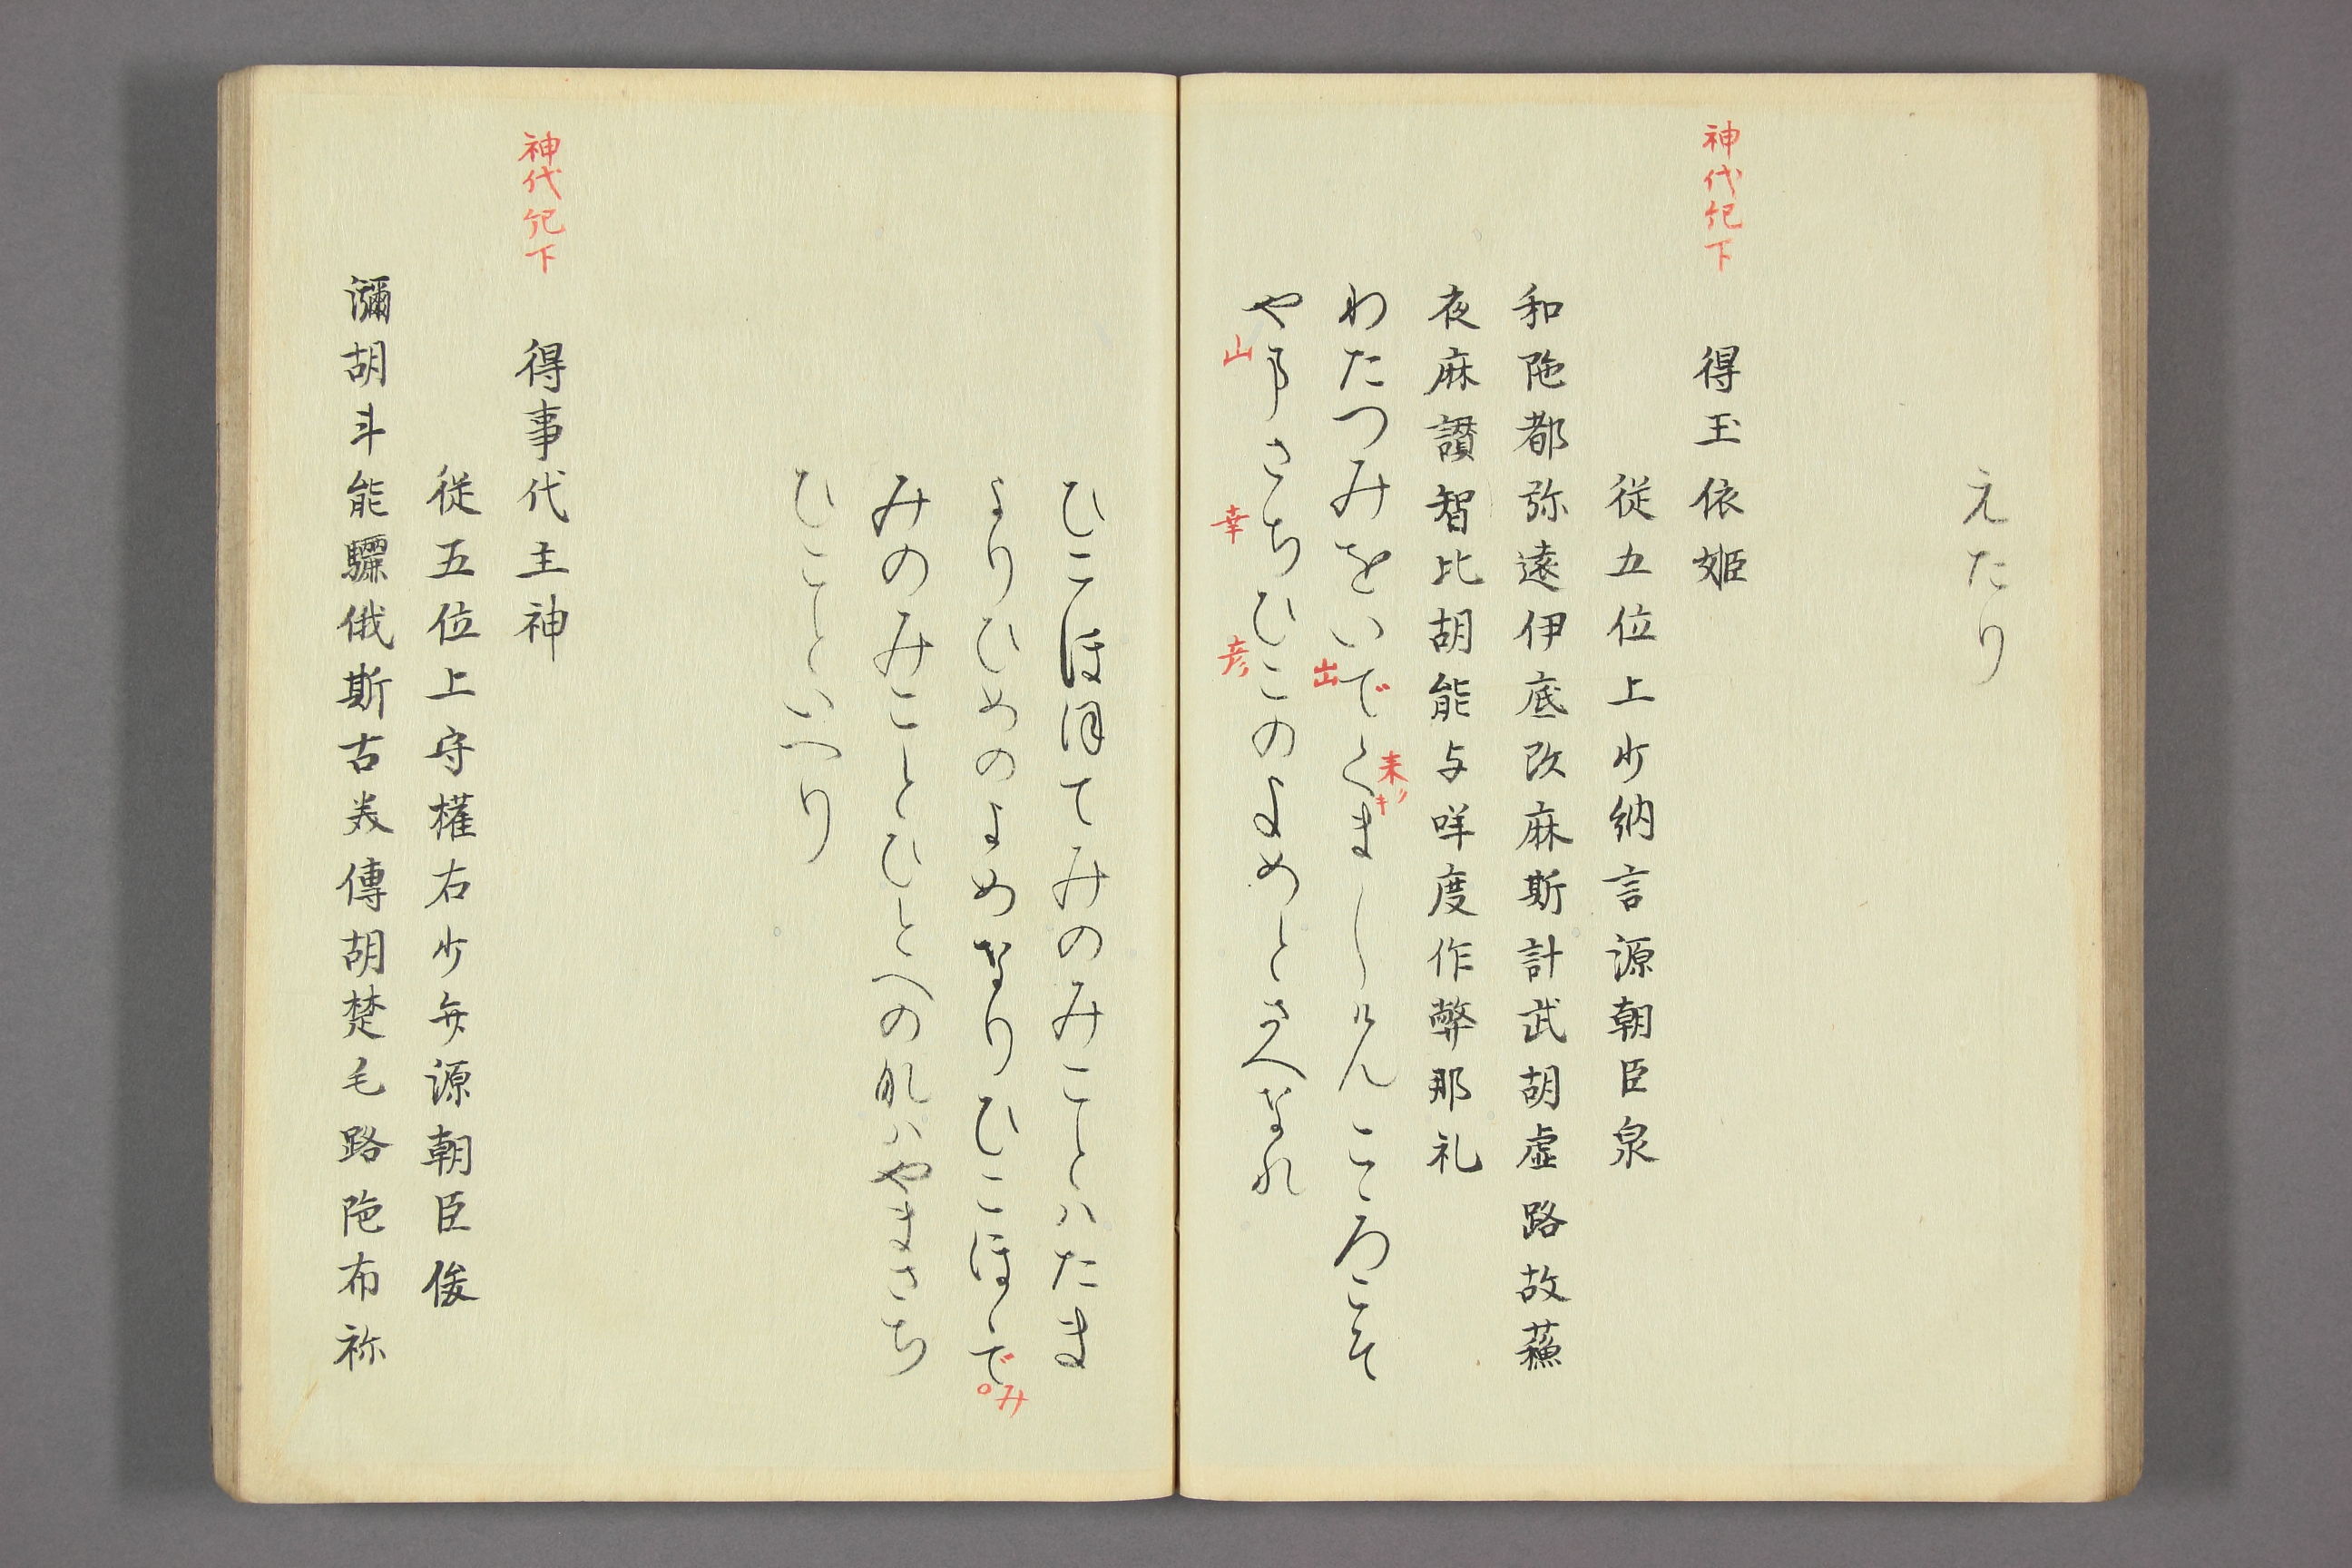 えたり
神代記下
得玉依姫
従五位上少納言源朝臣泉
和陁都弥遠伊底改麻斯計武胡虚路故蘓
夜麻讃智比胡能与咩度作弊那礼
わたつみをいでくましけんこゝろこそ
出
来リキ
やまさちひこのよめとさへなれ
山
幸
彦リ
ひこほほてみのみことハたま
よりひめのよめなりひこほゝで
み
みのみことひとへの
ハやまさち
ひことといへり
神代記下
得事代主神
従五位上守権右少弁源朝臣俊
瀰胡斗能驪俄斯古
傳胡楚毛路陁布祢